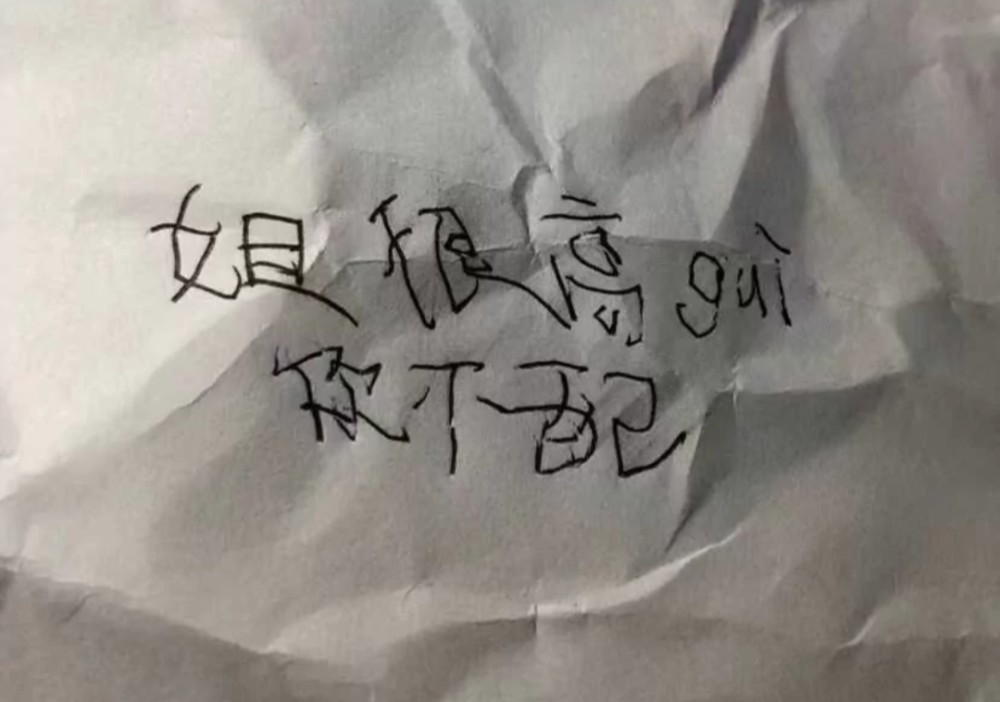 姐很高guì
你不配